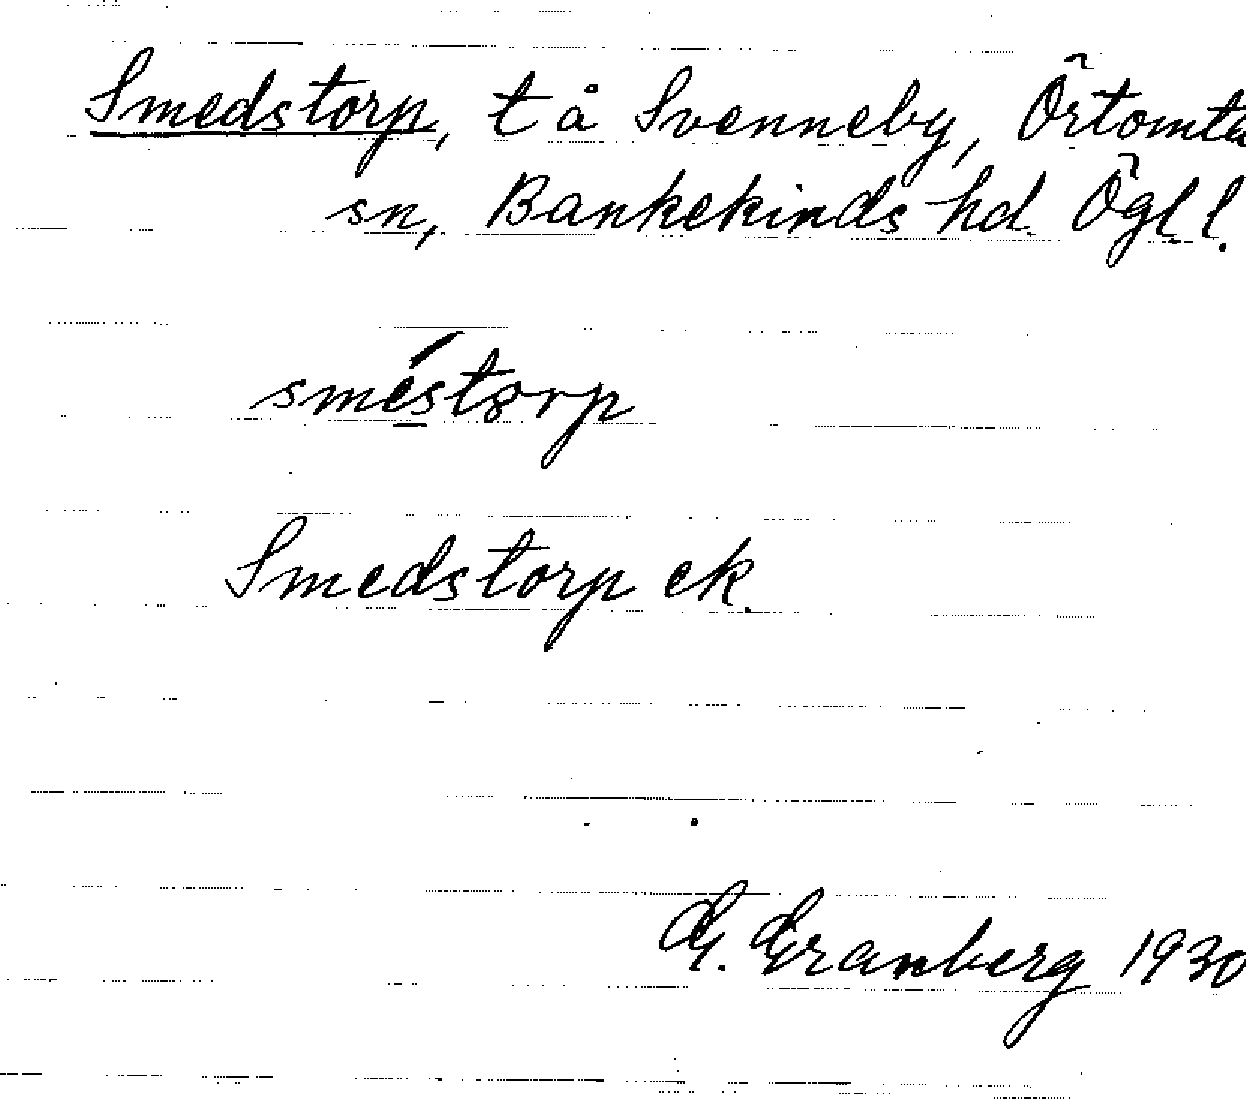 Smedstorp, t å Svenneby, Örtomta
sn, Bankekinds hd Ögl l.
sméstorp
Smedstorp ek.
G. Granberg 1930